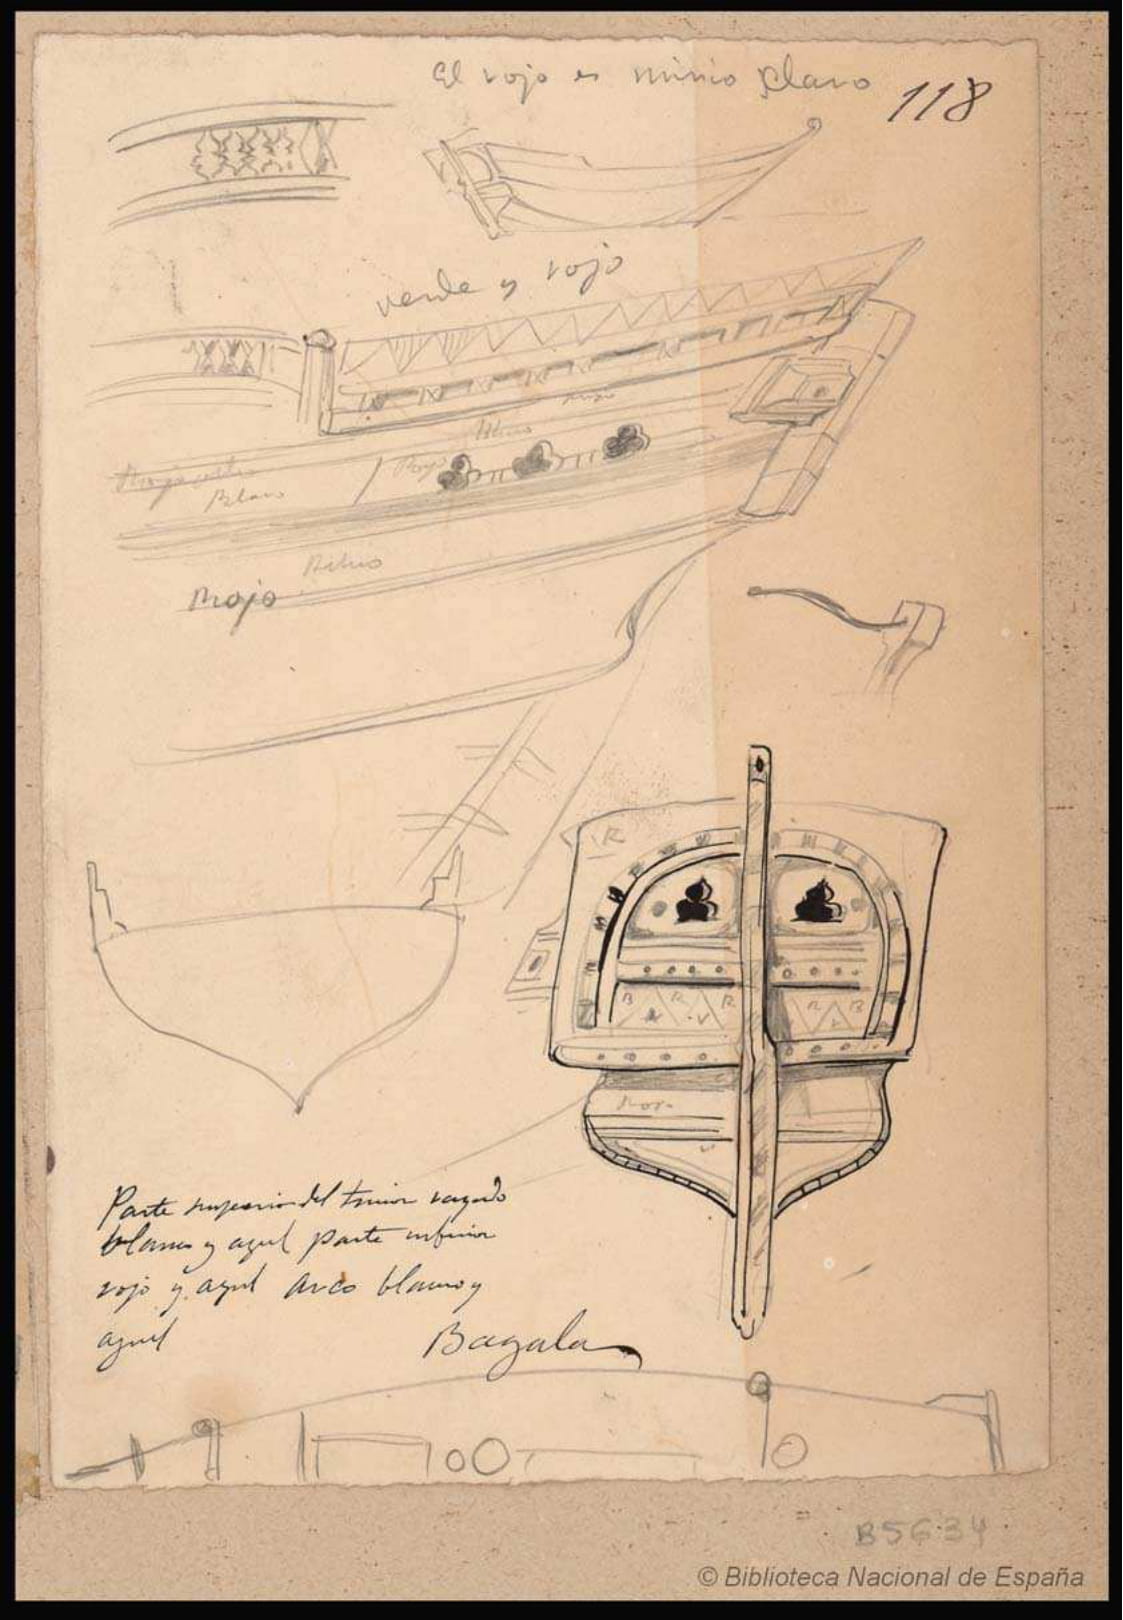 El rojo es minio claro
118
verde y rojo
Rojo
Blanco
Blanco
Rojo
R
B R R R B
V V V
Parte superior del timon rayado
blanco y azul parte inferior
rojo y azul arco blanco y
azul
Bagala
B5634
© Biblioteca Nacional de España